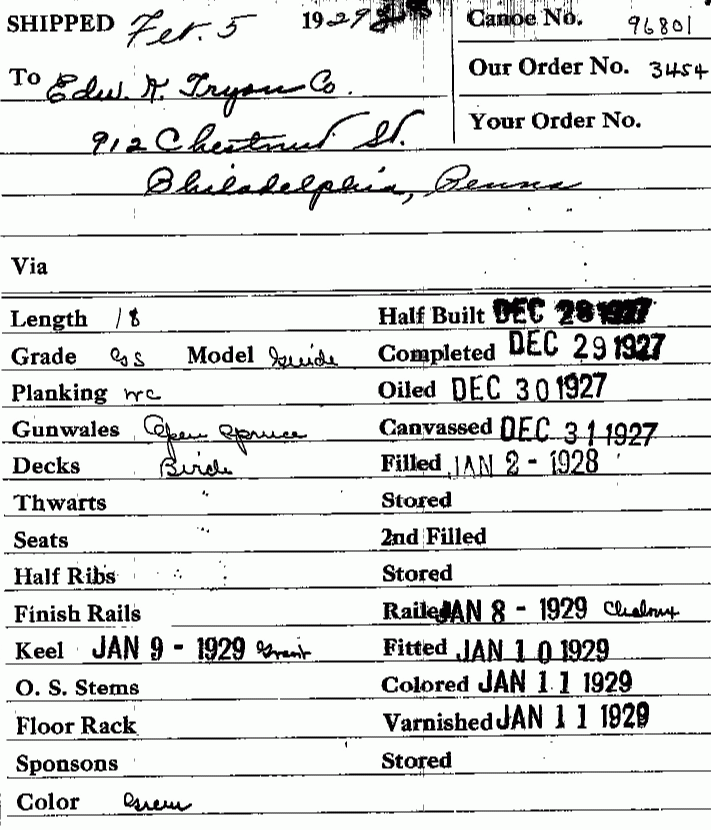 SHIPPED Feb. 5 1929 Canoe No. 96801
Our Order No. 3454
To Edw. K. Tryon Co.
Your Order No.
912 Chestnut St.
Philadelphia, Penna
Via
Length 18 Half Built DEC 28 1927
Grade Model Guide Completed DEC 29 1927
Planking WC Oiled DEC 30 1927
Gunwales Open Spruce Canvassed DEC 31 1927
Decks Birch Filled JAN 2 - 1928
Thwarts " Stored
Seats " 2nd Filled
Half Ribs Stored
Finish Rails Railed JAN 8 - 1929
Keel JAN 9 - 1929 Fitted JAN 10 1929
O. S. Stems Colored JAN 11 1929
Floor Rack Varnished JAN 11 1929
Sponsons Stored
Color Green